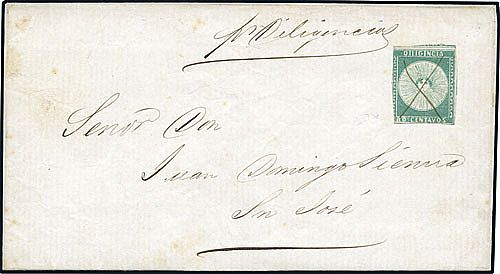 pr Diligencia
DILIGENCIA
CENTAVOS
Señor Don
Juan Domingo Sienra
Sn José